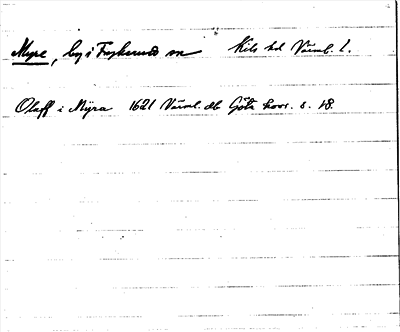 Myre, by i Frykerud sn Kils hd Värml. l.
Oluff i Myra 1621 Värml. db Göta hovr. s. 18.